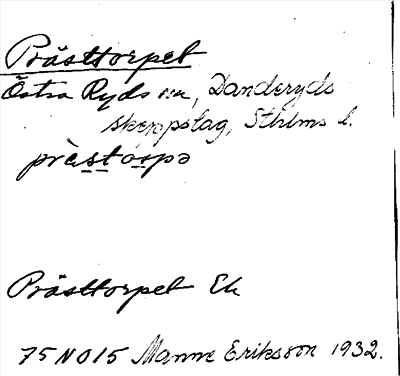 Prästtorpet
Östra Ryds sn, Danderyds
skeppslag, Sthlms l.
prèstårpə
Prästtorpet Ek
75 NO 15 Manne Eriksson 1932.